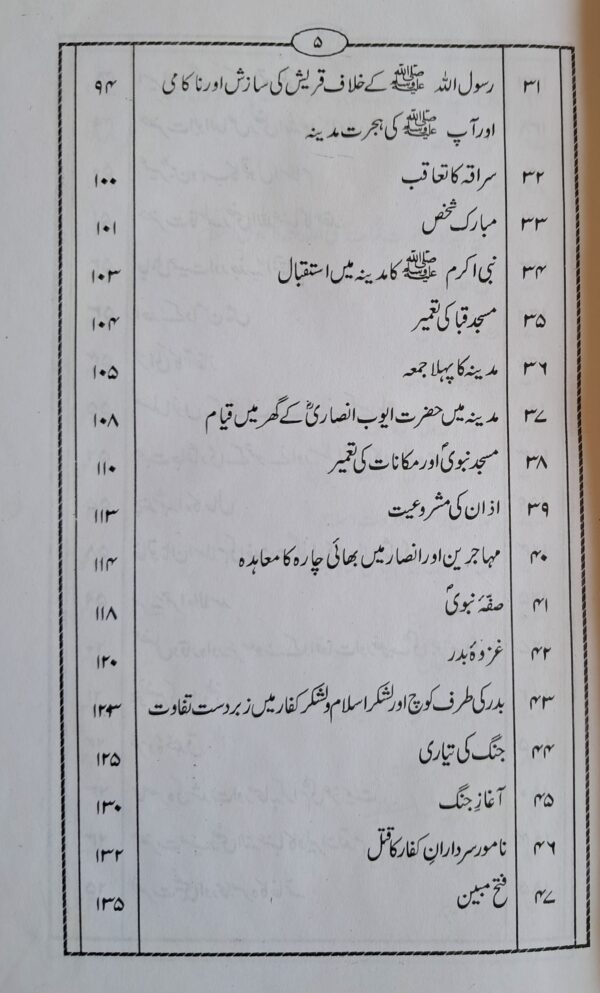 ۵
۳۱ رسول اللہ ﷺ کے خلاف قریش کی سازش اور ناکامی ۹۴
اور آپ ﷺ کی ہجرت مدینہ
۳۲ سراقہ کا تعاقب ۱۰۰
۳۳ مبارک شخص ۱۰۱
۳۴ نبی اکرم ﷺ کا مدینہ میں استقبال ۱۰۳
۳۵ مسجد قبا کی تعمیر ۱۰۴
۳۶ مدینہ کا پہلا جمعہ ۱۰۵
۳۷ مدینہ میں حضرت ایوب انصاریؓ کے گھر میں قیام ۱۰۸
۳۸ مسجد نبویؐ اور مکانات کی تعمیر ۱۱۰
۳۹ اذان کی مشروعیت ۱۱۳
۴۰ مہاجرین اور انصار میں بھائی چارہ کا معاہدہ ۱۱۴
۴۱ صفّہٴ نبویؐ ۱۱۸
۴۲ غزوہٴ بدر ۱۲۰
۴۳ بدر کی طرف کوچ اور لشکر اسلام و لشکر کفار میں زبردست تفاوت ۱۲۳
۴۴ جنگ کی تیاری ۱۲۵
۴۵ آغازِ جنگ ۱۳۰
۴۶ نامور سردارانِ کفار کا قتل ۱۳۲
۴۷ فتح مبین ۱۳۵